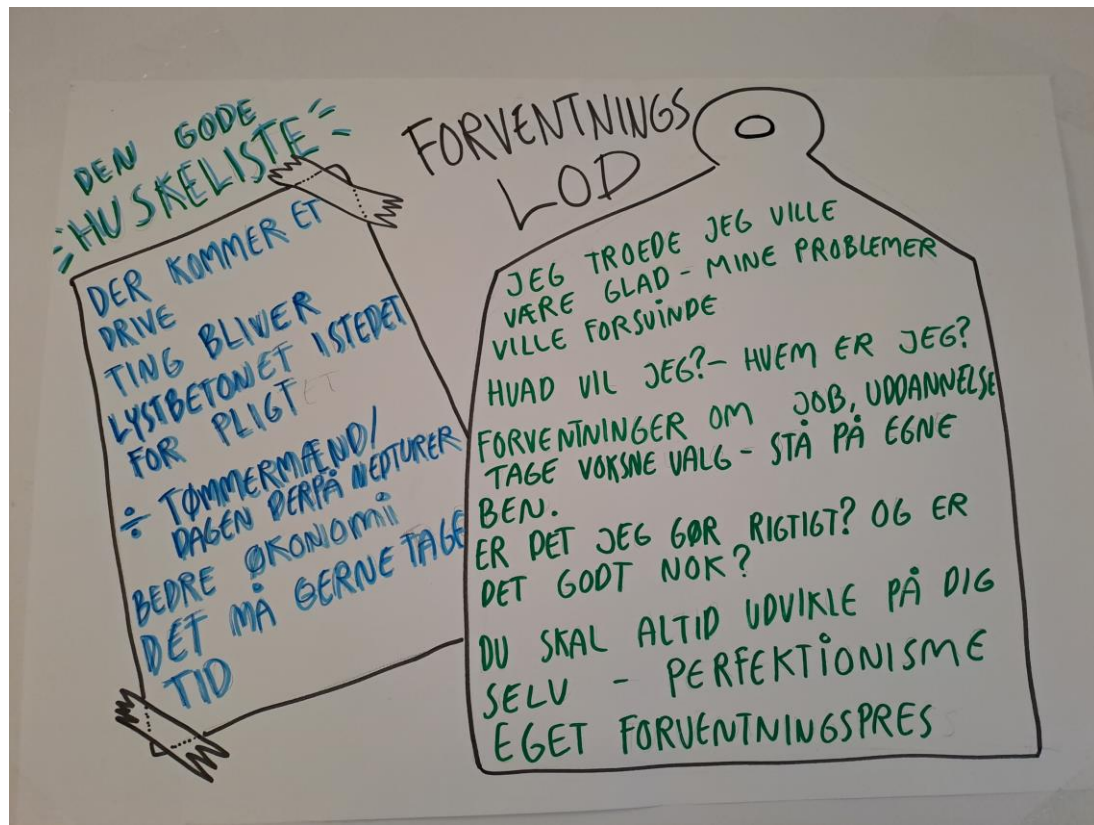 DEN GODE
HUSKELISTE
DER KOMMER ET
DRIVE
TING BLIVER
LYSTBETONET ISTEDET
FOR PLIGTET
÷ TØMMERMÆND/
DAGEN DERPÅ NEDTURER
BEDRE ØKONOMI
DET MÅ GERNE TAGE
TID
FORVENTNINGS
LOD
JEG TROEDE JEG VILLE
VÆRE GLAD - MINE PROBLEMER
VILLE FORSVINDE
HVAD VIL JEG? - HVEM ER JEG?
FORVENTNINGER OM JOB, UDDANNELSE
TAGE VOKSNE VALG - STÅ PÅ EGNE
BEN.
ER DET JEG GØR RIGTIGT? OG ER
DET GODT NOK?
DU SKAL ALTID UDVIKLE PÅ DIG
SELV - PERFEKTIONISME
EGET FORVENTNINGSPRES